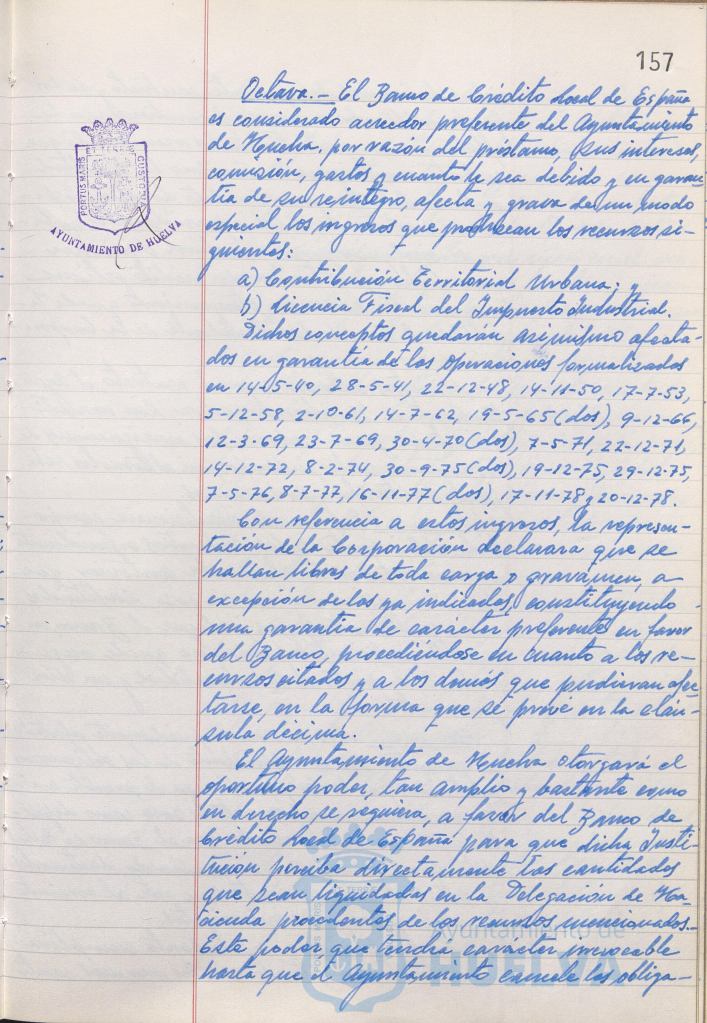 157
Octava.- El Banco de Crédito Local de España
es considerado acreedor preferente del Ayuntamiento
de Huelva, por razón del préstamo, sus intereses,
comisión, gastos y cuanto le sea debido y en garan-
tía de su reintegro, afecta y grava de un modo
especial los ingresos que produzcan los recursos si-
guientes:
a) Contribución Territorial Urbana; y
b) Licencia Fiscal del Impuesto Industrial.
Dichos conceptos quedarán asimismo afecta-
dos en garantía de las operaciones formalizadas
en 14-5-40, 28-5-41, 22-12-48, 14-11-50, 17-7-53,
5-12-58, 2-10-61, 14-7-62, 19-5-65 (dos), 9-12-66,
12-3-69, 23-7-69, 30-4-70 (dos), 7-5-71, 22-12-71,
14-12-72, 8-2-74, 30-9-75 (dos), 19-12-75, 29-12-75,
7-5-76, 8-7-77, 16-11-77 (dos), 17-11-78 y 20-12-78.
Con referencia a estos ingresos, la represen-
tación de la Corporación declara que se
hallan libres de toda carga o gravámen, a
excepción de los ya indicados, constituyendo
una garantía de carácter preferente en favor
del Banco, procediéndose en cuanto a los re-
cursos citados y a los demás que pudieran afec-
tarse, en la forma que se prevé en la cláu-
sula décima.
El Ayuntamiento de Huelva otorgará el
oportuno poder, tan amplio y bastante como
en derecho se requiera, a favor del Banco de
Crédito Local de España para que dicha Insti-
tución perciba directamente las cantidades
que sean liquidadas en la Delegación de Ha-
cienda procedentes de los recursos mencionados.-
Este poder que tendrá carácter irrevocable
hasta que el Ayuntamiento cancele las obliga-
PORTUS MARIS ET TERRE CUSTODIA
AYUNTAMIENTO DE HUELVA
Ayuntamiento de
HUELVA